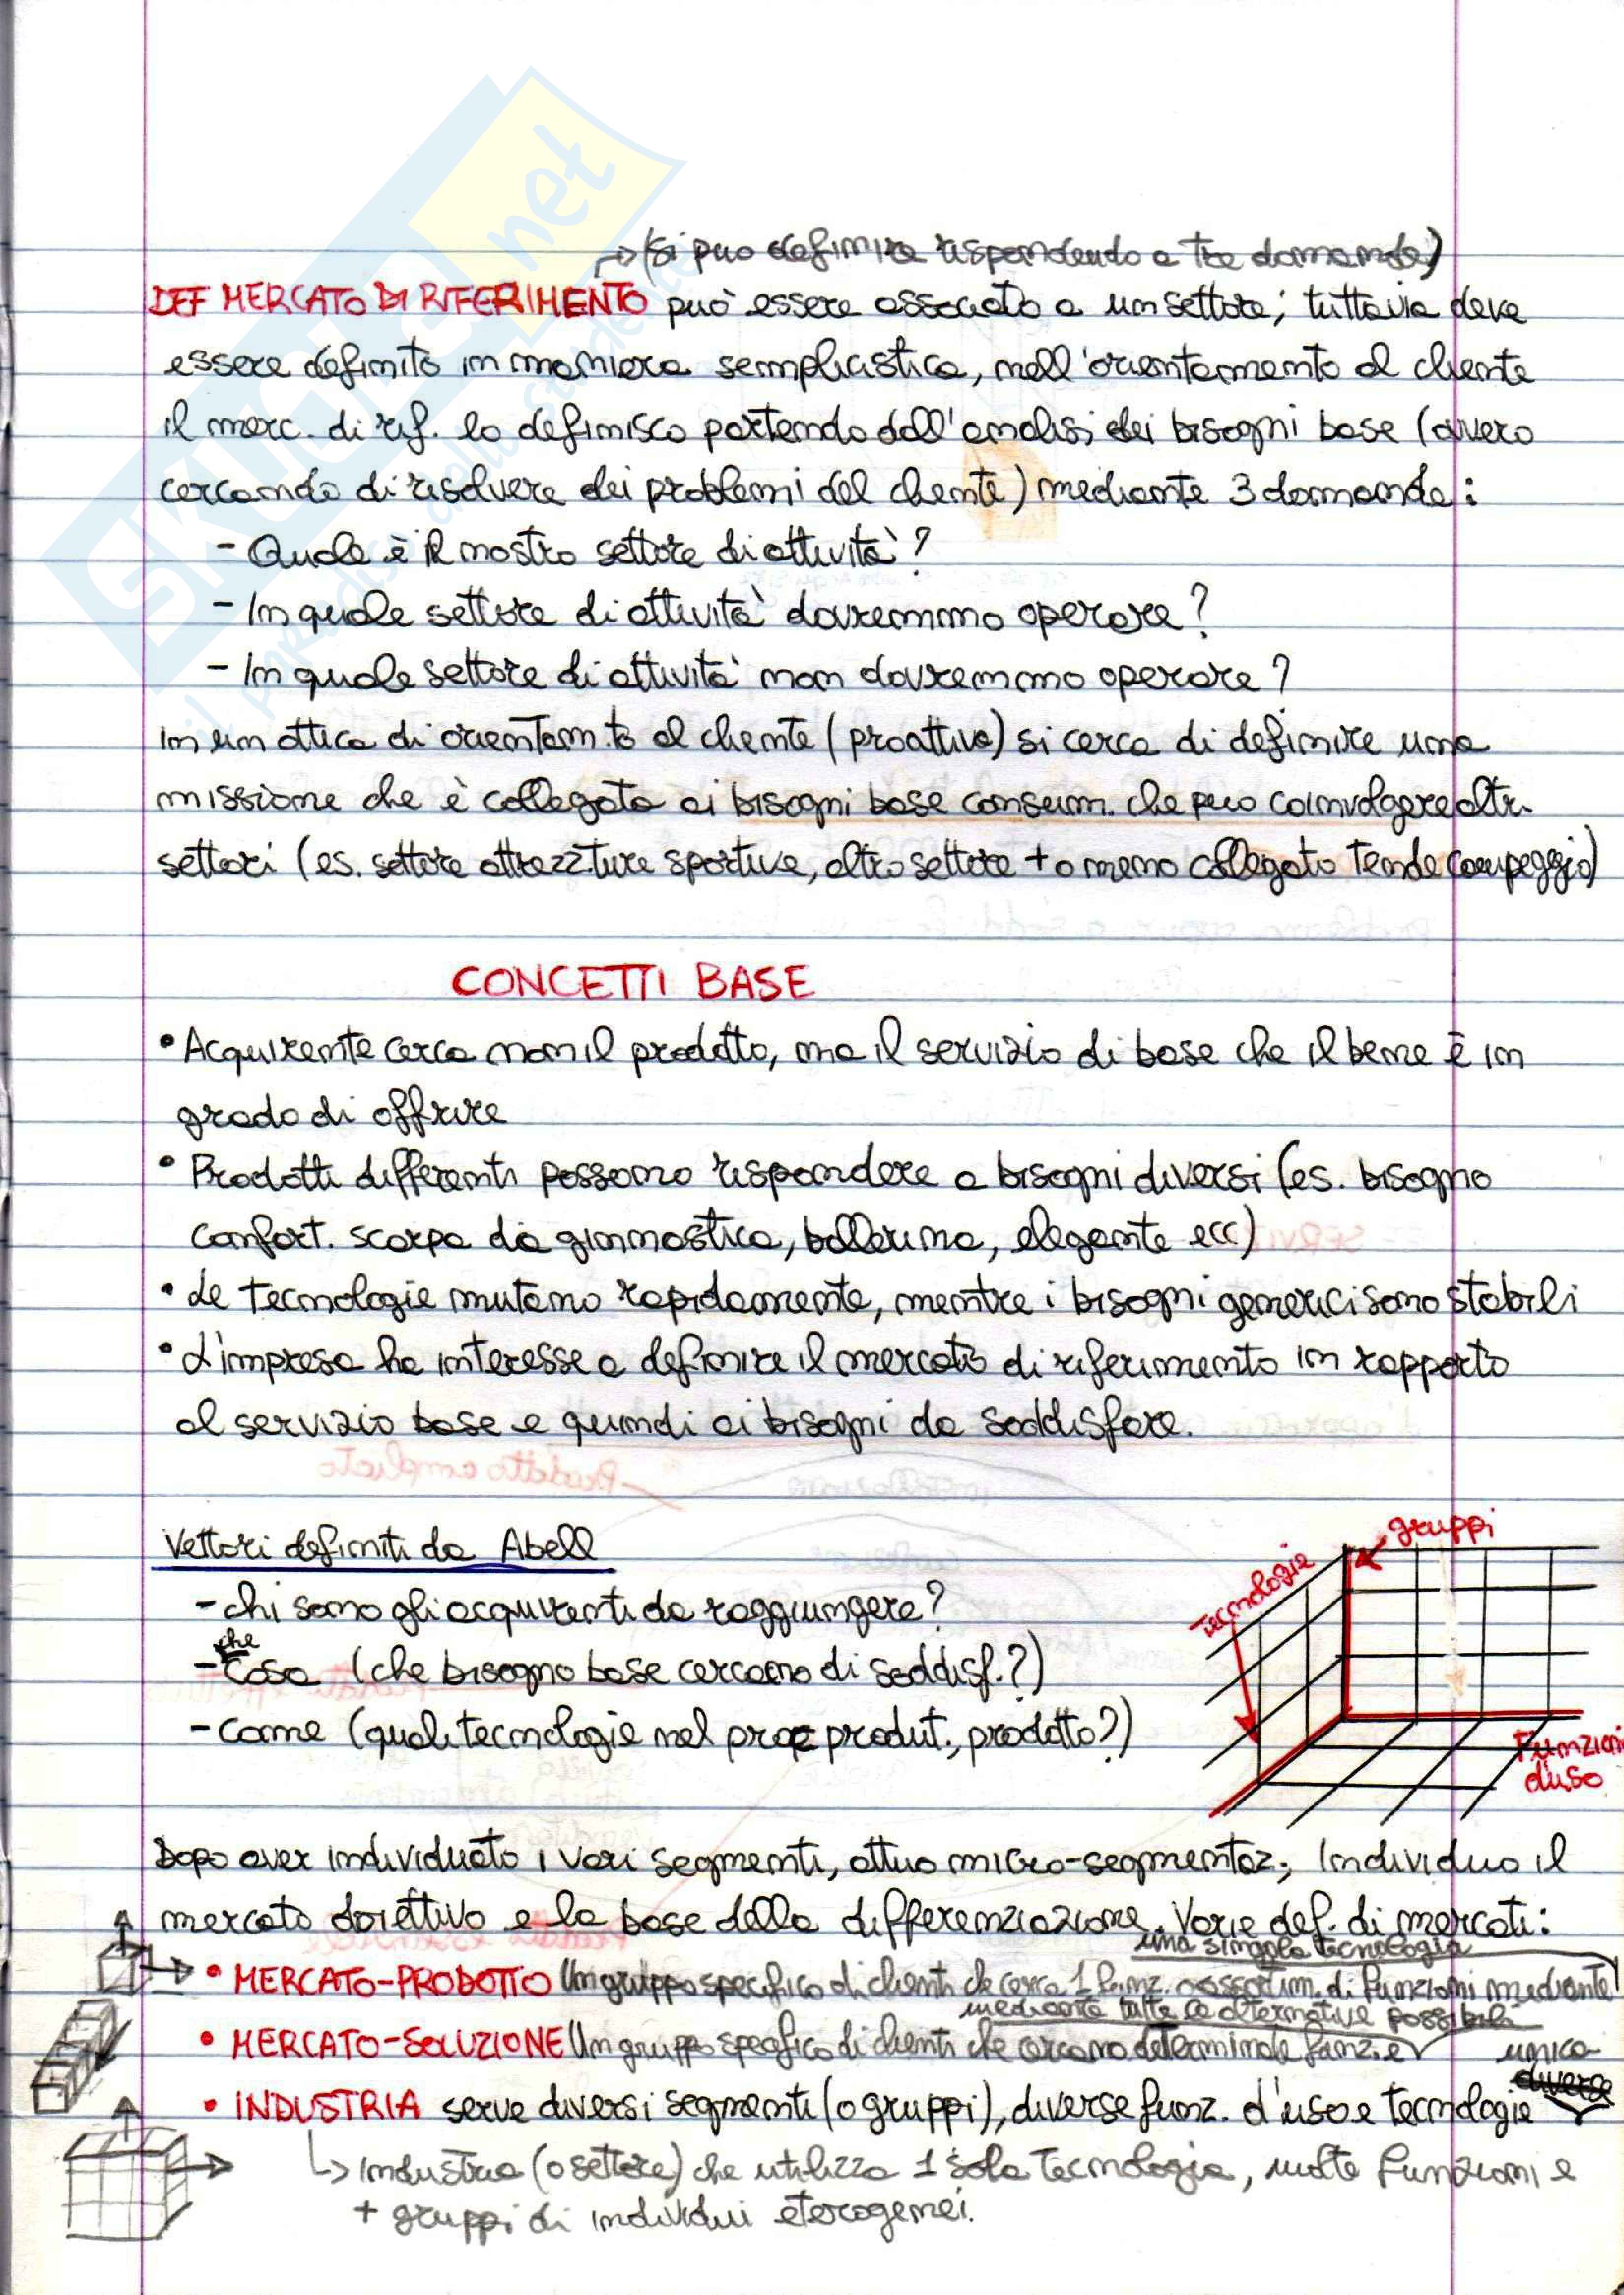 →(si può definire rispondendo a tre domande)
DEF MERCATO DI RIFERIMENTO può essere associato a un settore; tuttavia deve
essere definito in maniera semplicistica, nell'orientamento al cliente
il merc. di rif. lo definisco partendo dall'analisi dei bisogni base (ovvero
cercando di risolvere dei problemi del cliente) mediante 3 domande:
- Quale è il nostro settore di attività?
- In quale settore di attività dovremmo operare?
- In quale settore di attività non dovremmo operare?
In un ottica di orientam.to al cliente (proattivo) si cerca di definire una
missione che è collegata ai bisogni base consum. che può coinvolgere altri
settori (es. settore attrezzture sportive, altro settore + o meno collegato tende campeggio)
CONCETTI BASE
• Acquirente cerca non il prodotto, ma il servizio di base che il bene è in
grado di offrire
• Prodotti differenti possono rispondere a bisogni diversi (es. bisogno
confort. scarpa da ginnastica, ballerina, elegante ecc)
• Le tecnologie mutano rapidamente, mentre i bisogni generici sono stabili
• L'impresa ha interesse a definire il mercato di riferimento in rapporto
al servizio base e quindi ai bisogni da soddisfare.
Vettori definiti da Abell
- chi sono gli acquirenti da raggiungere?
- che Cosa (che bisogno base cercano di soddisf.?)
- come (quali tecnologie nel proc produt., prodotto?)
gruppi
Tecnologie
Funzioni
d'uso
Dopo aver individuato i vari segmenti, attuo micro-segmentaz; Individuo il
mercato obiettivo e la base della differenziazione. Varie def. di mercati:
una singola tecnologia
• MERCATO-PRODOTTO Un gruppo specifico di clienti che cerca 1 funz. o assortim. di funzioni mediante
mediante tutte le alternative possibili
• MERCATO-SOLUZIONE Un gruppo specifico di clienti che cercano determinate funz. e
unica
diverse
• INDUSTRIA serve diversi segmenti (o gruppi), diverse funz. d'uso e tecnologie
↳ Industria (o settore) che utilizza 1 sola tecnologia, molte funzioni e
+ gruppi di individui eterogenei.
SKUOLA.net